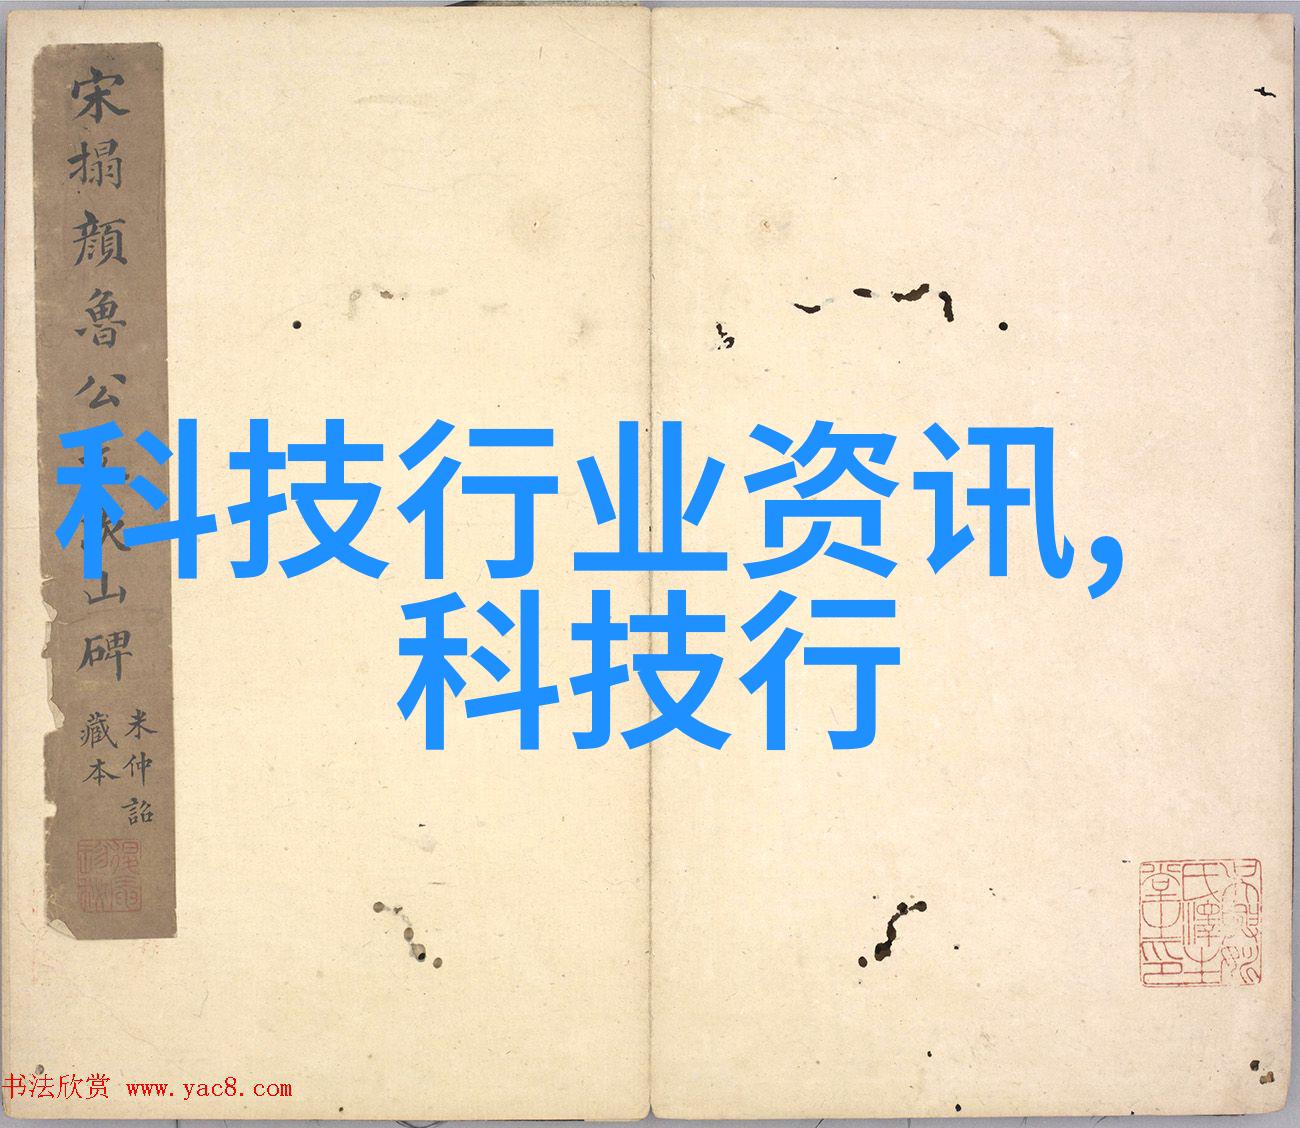 宋搨顔魯公
山碑
米仲詔
藏本
科技行业资讯,
科技行
书法欣赏 www.yac8.com